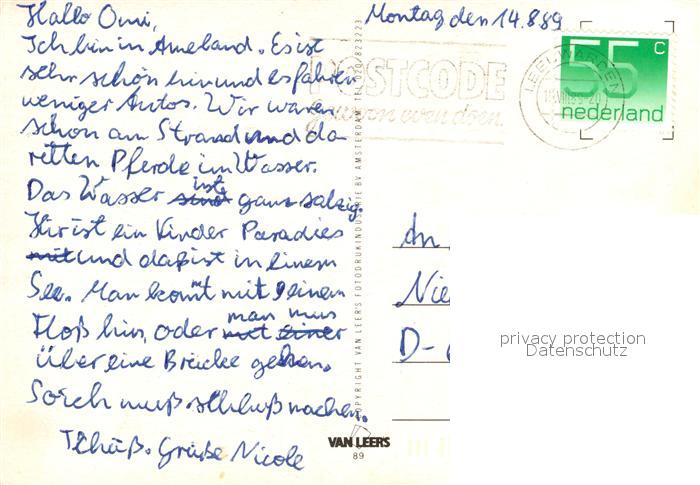 Hallo Omi,
Montag den 14.8.89
Ich bin in Ameland. Es ist
sehr schön hir und es fahren
weniger Autos. Wir waren
schon am Strand und da
retten Pferde im Wasser.
Das Wasser ist ganz salzig.
Hir ist ein Kinder Paradies
und daß ist in einem
See. Man kommt mit einem
Floß hin, oder man mus
über eine Brücke gehen.
So ich muß schluß machen.
Tschüß. Grüße Nicole
VAN LEERS
89
COPYRIGHT VAN LEER'S FOTODRUKINDUSTRIE BV AMSTERDAM TEL 020/823223
POSTCODE
gewoon even doen.
LEEUWARDEN
55 c
nederland
An
Nie
D-
privacy protection
Datenschutz